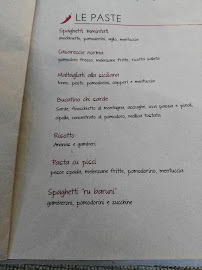 LE PASTE
Spaghetti ammuntati
aneddoti, pomodorini, aglio, mentuccia
Casarecce norma
pomodoro fresco, melanzane fritte, ricotta salata
Maltagliati alla siciliana
tonno, pesto, pomodorini, capperi e mentuccia
Bucatino chi sarde
Sarde, finocchietto di montagna, acciughe, uva passa e pinoli,
cipolla, concentrato di pomodoro, mollica tostata
Risotto
Arancia e gamberi
Pasta cu pisci
pesce spada, melanzane fritte, pomodorino, mentuccia
Spaghetti "ru baruni"
gamberoni, pomodorini e zucchine